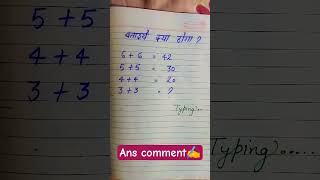 बताइये क्या होगा ?
6 + 6 = 42
5 + 5 = 30
4 + 4 = 20
3 + 3 = ?
Typing...
Ans comment✍️
5 + 5
4 + 4
3 + 3
Typing.....